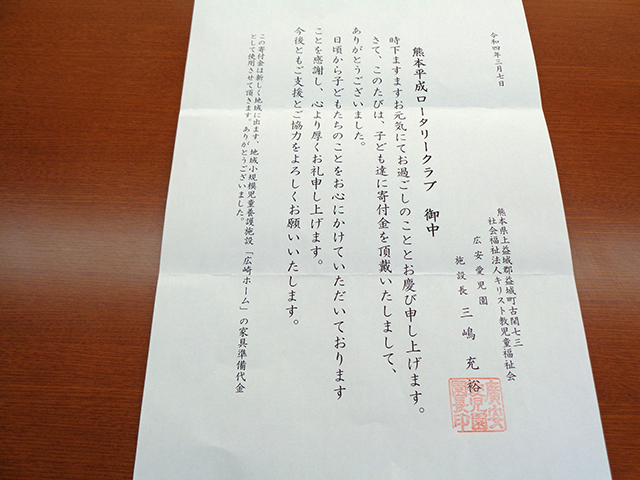 令和四年三月七日
熊本県上益城郡益城町古閑七三
社会福祉法人キリスト教児童福祉会
広安愛児園
施設長 三嶋充裕
熊本平成ロータリークラブ 御中
時下ますますお元気にてお過ごしのこととお慶び申し上げます。
さて、このたびは、子ども達に寄付金を頂戴いたしまして、
ありがとうございました。
日頃から子どもたちのことをお心にかけていただいております
ことを感謝し、心より厚くお礼申し上げます。
今後ともご支援とご協力をよろしくお願いいたします。
この寄付金は新しく地域に出ます、地域小規模児童養護施設「広崎ホーム」の家具準備代金
として使用させて頂きます。ありがとうございました。